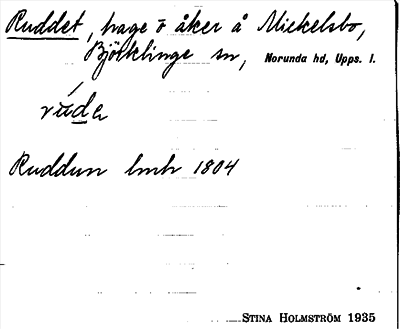 Ruddet, hage o åker å Mickelsbo,
Björklinge sn, Norunda hd, Upps. l.
rude
Ruddun lmh 1804
STINA HOLMSTRÖM 1935